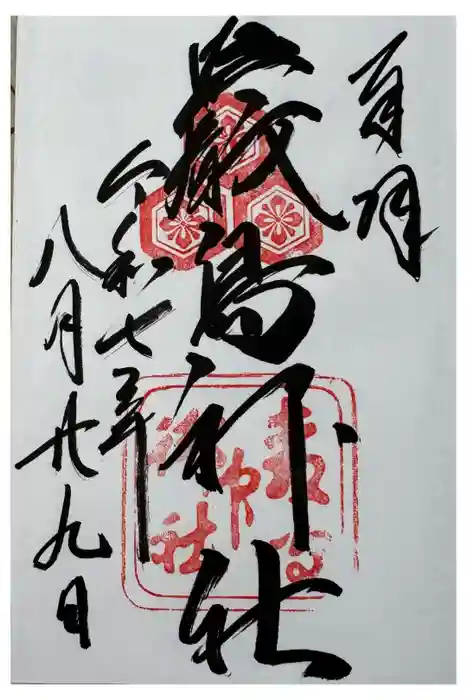 奉拝
厳島神社
令和七年
八月廿九日